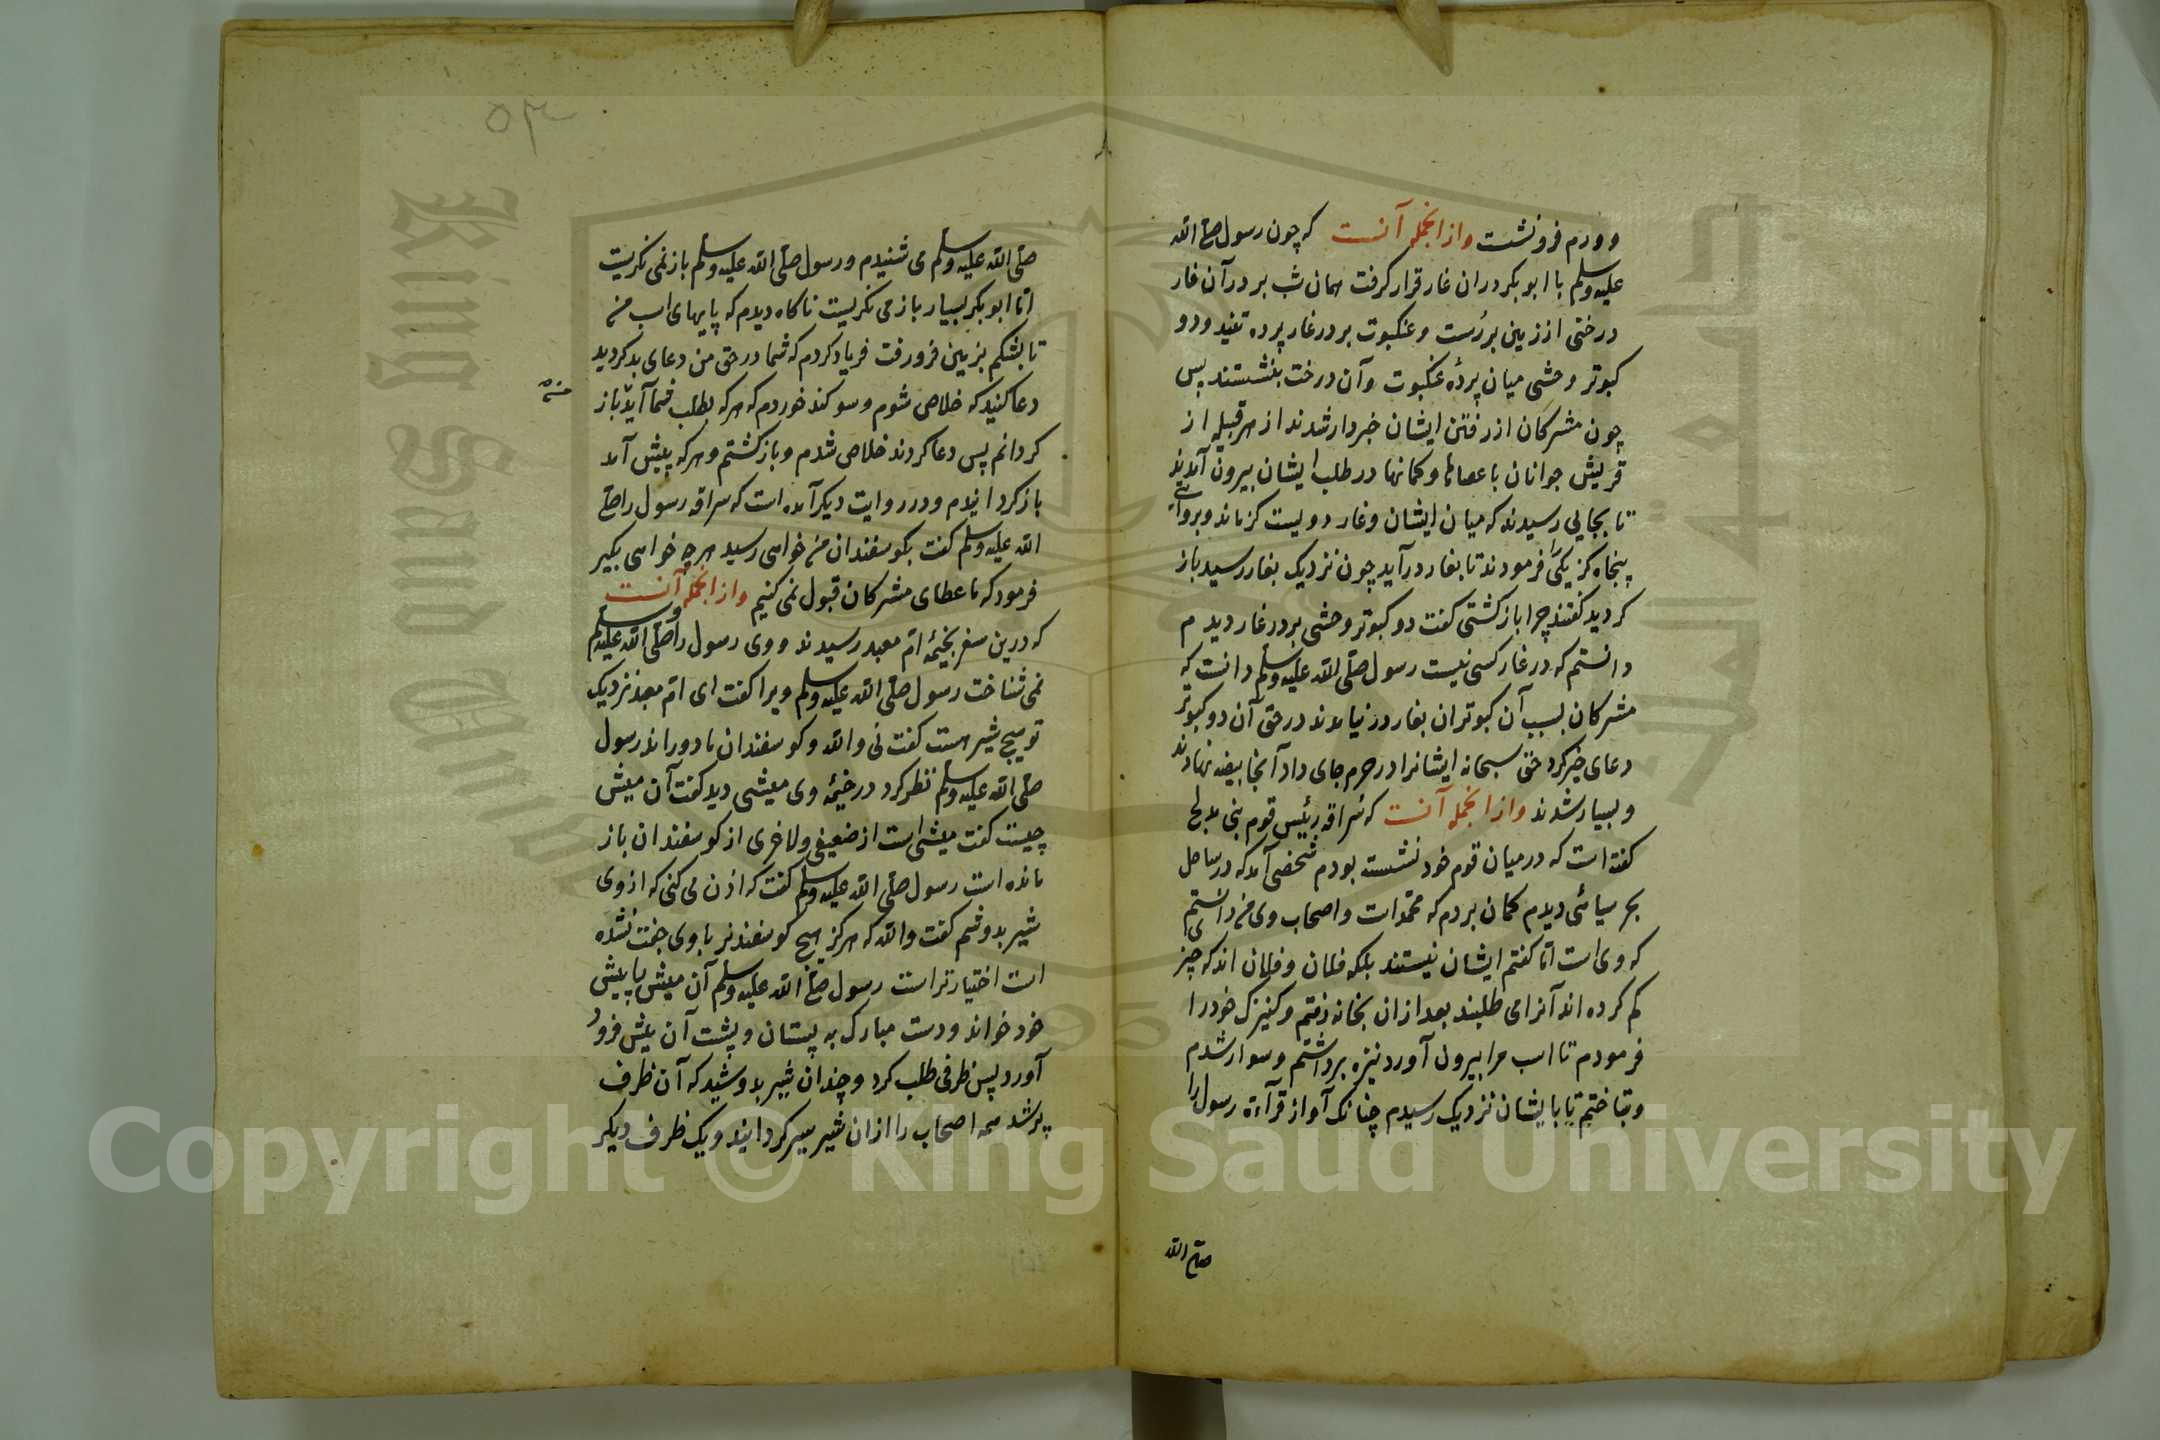 وورم فرونشست واز انجمله آنست که چون رسول صلی الله
علیه وسلم با ابوبکر دران غار قرار گرفت همان شب بر در آن غار
درختی از زمین بررُست و عنکبوت بر در غار پرده تنید و دو
کبوتر وحشی میان پردهٔ عنکبوت وآن درخت بنشستند پس
چون مشرکان از رفتن ایشان خبردار شدند از هر قبیله از
قریش جوانان با عصاها و کمانها در طلب ایشان بیرون آمدند
تا بجایی رسیدند که میان ایشان و غار دویست گز ماند و بروایتی
پنجاه گز یکی را فرمودند تا بغار درآید چون نزدیک بغار رسید باز
گردید گفتند چرا بازگشتی گفت دو کبوتر وحشی بر در غار دیدم
دانستم که در غار کسی نیست رسول صلی الله علیه وسلم دانست که
مشرکان بسبب آن کبوتران بغار در نیامدند در حق آن دو کبوتر
دعای خیر کرد حق سبحانه ایشانرا در حرم جای داد آنجا بیضه نهادند
و بسیار شدند واز انجمله آنست که سُراقه رئیس قوم بنی مدلج
گفته است که در میان قوم خود نشسته بودم شخصی آمد که در ساحل
بحر سیاهی دیدم گمان بردم که محمدست و اصحاب وی من دانستم
که وی است اما گفتم ایشان نیستند بلکه فلان و فلان اند که چیزی
گم کرده اند آنرا می طلبند بعد ازان بخانه رفتم و کنیزک خود را
فرمودم تا اسب مرا بیرون آورد نیزه برداشتم و سوار شدم
و بتاختم تا با یشان نزدیک رسیدم چنانک آواز قرآءة رسول را
صلی الله
۵۳
صلی الله علیه وسلم می شنیدم و رسول صلی الله علیه وسلم باز نمی نگریست
اما ابوبکر بسیار باز می نگریست ناگاه دیدم که پایهای اسب من
تا بشکم بزمین فرو رفت فریاد کردم که شما در حق من دعای بد کردید
دعا کنید که خلاص شوم و سوگند خوردم که هر که بطلب شما آید باز
گردانم پس دعا کردند خلاص شدم و بازگشتم و هر که پیش آمد
باز گردانیدم و در روایت دیگر آمده است که سراقه رسول را صلی
الله علیه وسلم گفت بگوسفندان من خواهی رسید هر چه خواهی بگیر
فرمود که ما عطای مشرکان قبول نمی کنیم واز انجمله آنست
که درین سفر بخیمهٔ ام معبد رسیدند و وی رسول را صلی الله علیه وسلم
نمی شناخت رسول صلی الله علیه وسلم ویرا گفت ای ام معبد نزدیک
تو هیچ شیر هست گفت نی والله و گوسفندان ما دوراند رسول
صلی الله علیه وسلم نظر کرد در خیمهٔ وی میشی دید گفت آن میش
چیست گفت میشی است از ضعیفی و لاغری از گوسفندان باز
مانده است رسول صلی الله علیه وسلم گفت که اذن می کنی که از وی
شیر بدوشم گفت والله که هرگز هیچ گوسفند نر با وی جفت نشده
است اختیار تراست رسول صلی الله علیه وسلم آن میش را پیش
خود خواند و دست مبارک به پستان و پشت آن میش فرود
آورد پس ظرفی طلب کرد و چندان شیر بدوشید که آن ظرف
پر شد همه اصحاب را ازان شیر سیر گردانید و یک ظرف دیگر
Copyright © King Saud University
King Saud University